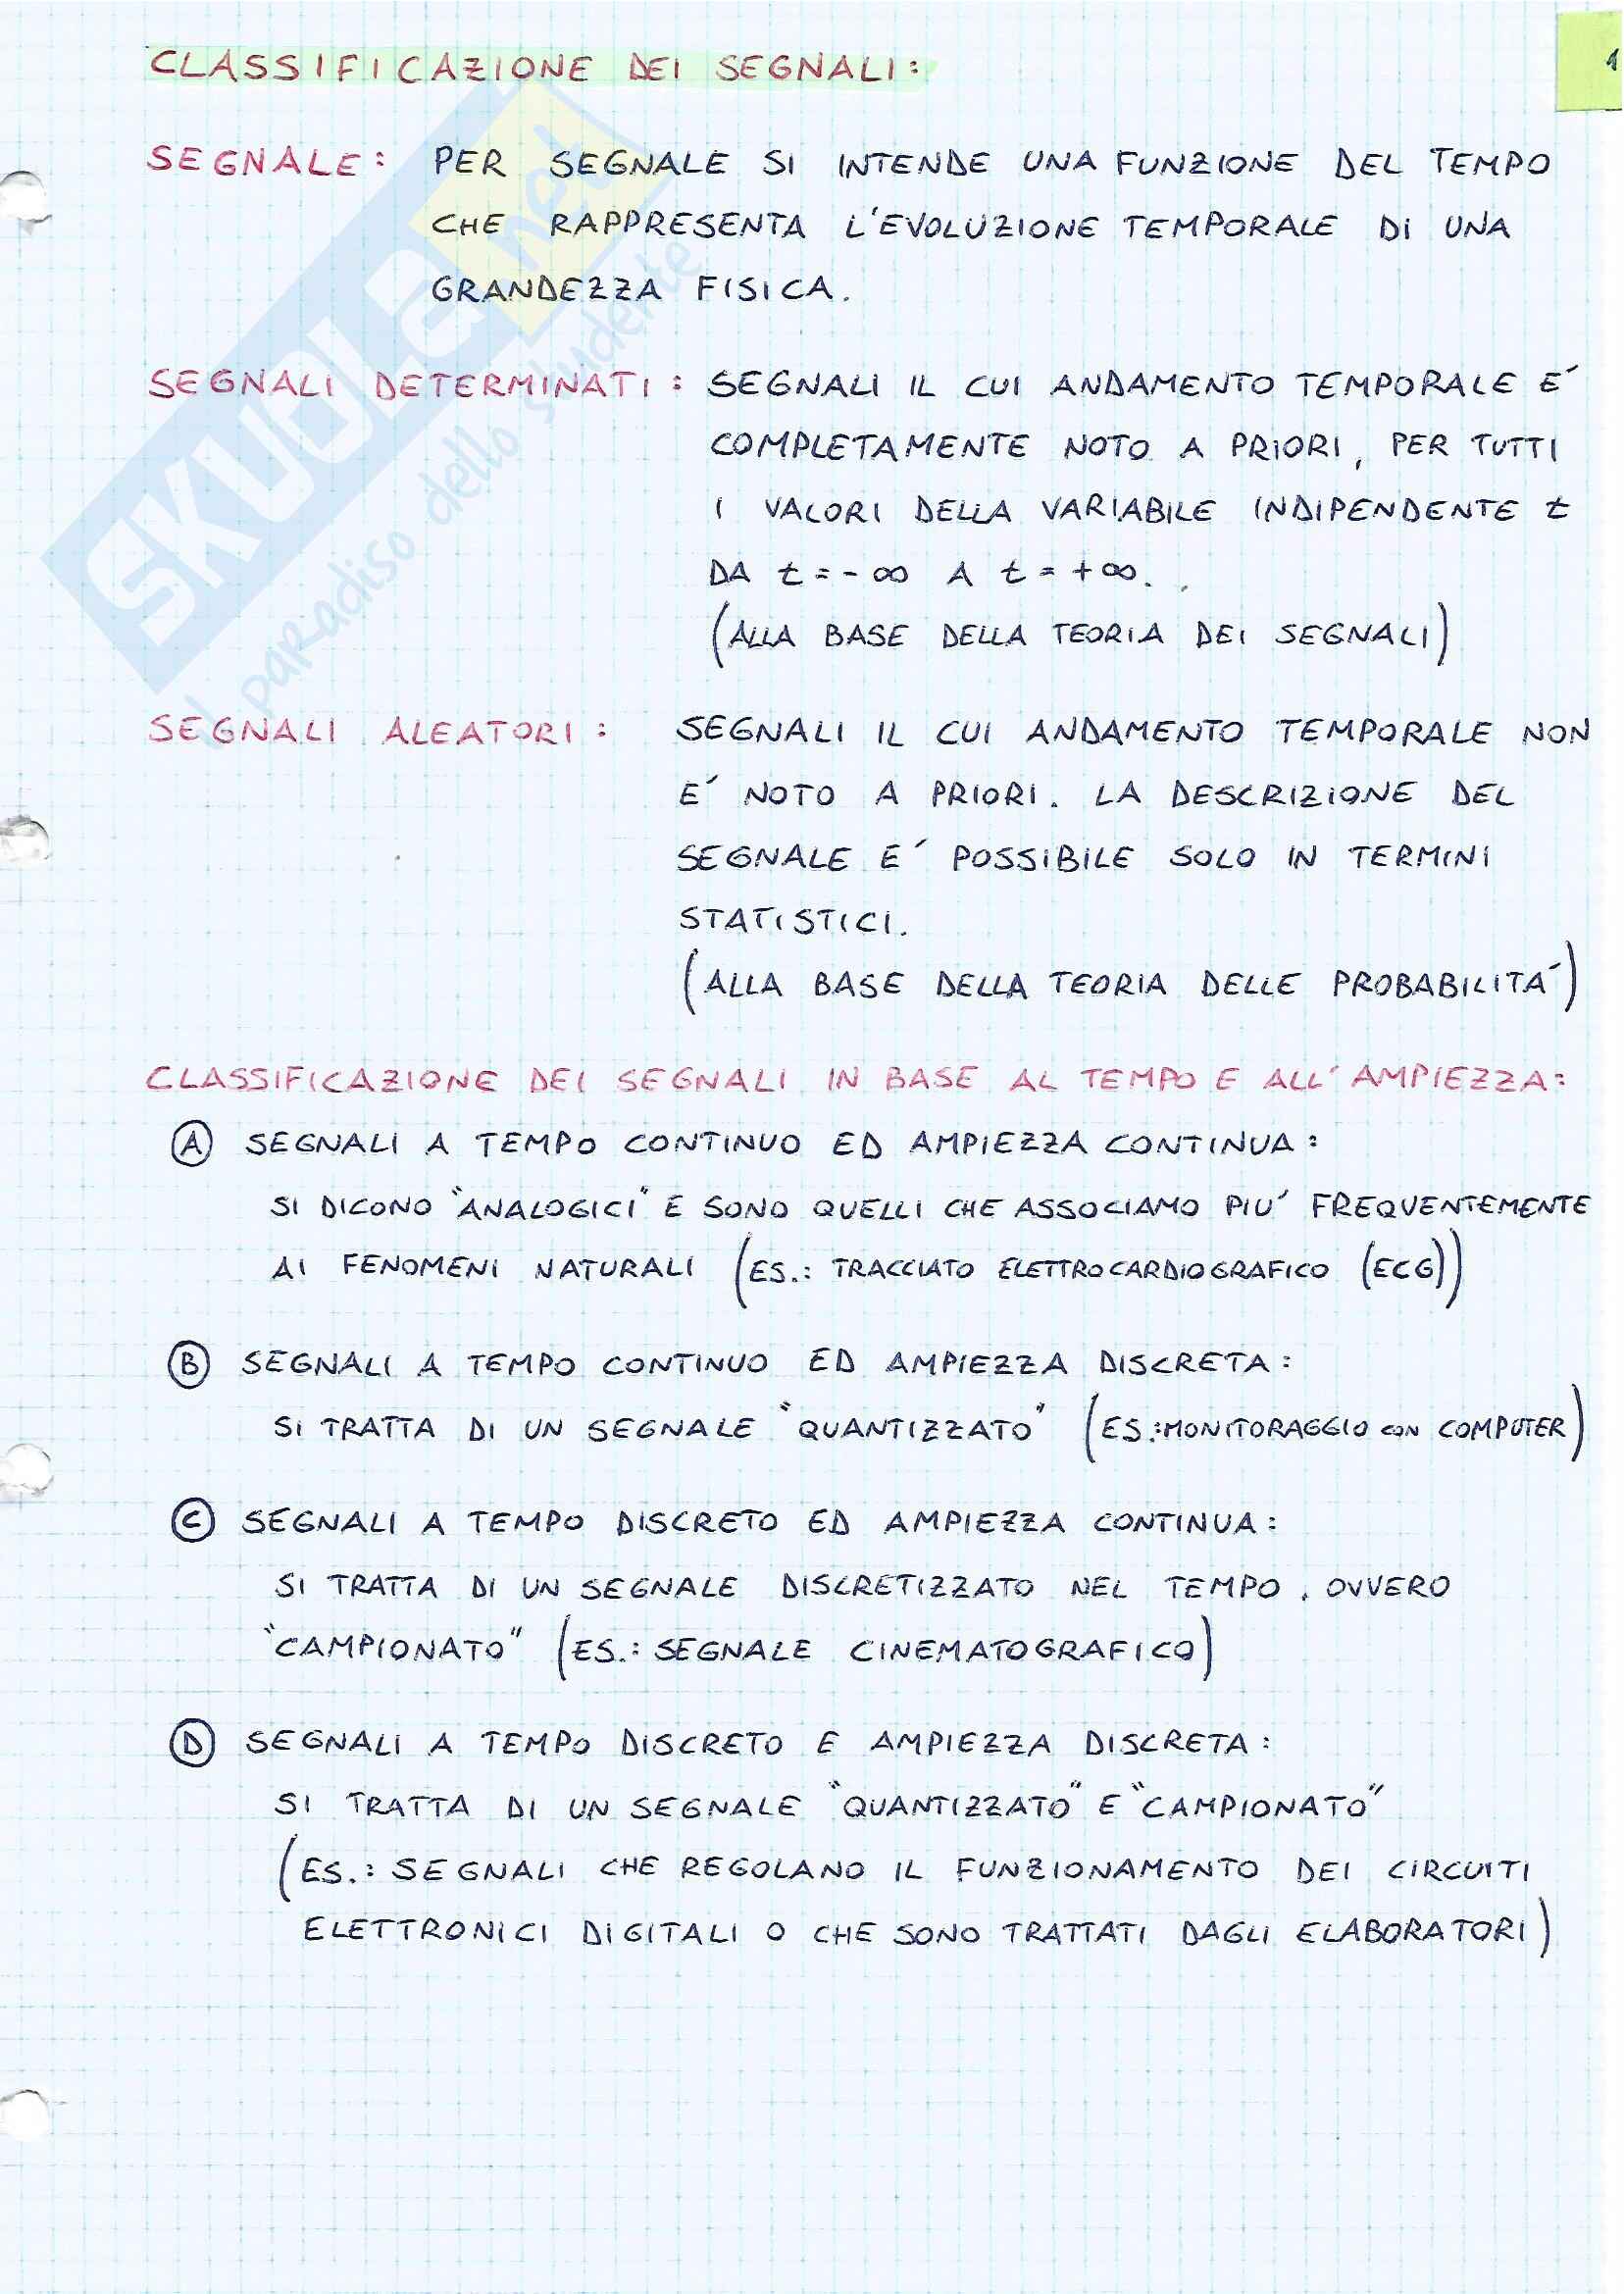 CLASSIFICAZIONE DEI SEGNALI:
1
SEGNALE: PER SEGNALE SI INTENDE UNA FUNZIONE DEL TEMPO
CHE RAPPRESENTA L'EVOLUZIONE TEMPORALE DI UNA
GRANDEZZA FISICA.
SEGNALI DETERMINATI: SEGNALI IL CUI ANDAMENTO TEMPORALE E'
COMPLETAMENTE NOTO A PRIORI, PER TUTTI
I VALORI DELLA VARIABILE INDIPENDENTE t
DA t = - ∞ A t = + ∞.
(ALLA BASE DELLA TEORIA DEI SEGNALI)
SEGNALI ALEATORI: SEGNALI IL CUI ANDAMENTO TEMPORALE NON
E' NOTO A PRIORI. LA DESCRIZIONE DEL
SEGNALE E' POSSIBILE SOLO IN TERMINI
STATISTICI.
(ALLA BASE DELLA TEORIA DELLE PROBABILITA')
CLASSIFICAZIONE DEI SEGNALI IN BASE AL TEMPO E ALL'AMPIEZZA:
A SEGNALI A TEMPO CONTINUO ED AMPIEZZA CONTINUA:
SI DICONO "ANALOGICI" E SONO QUELLI CHE ASSOCIAMO PIU' FREQUENTEMENTE
AI FENOMENI NATURALI (ES.: TRACCIATO ELETTROCARDIOGRAFICO (ECG))
B SEGNALI A TEMPO CONTINUO ED AMPIEZZA DISCRETA:
SI TRATTA DI UN SEGNALE "QUANTIZZATO" (ES.: MONITORAGGIO CON COMPUTER)
C SEGNALI A TEMPO DISCRETO ED AMPIEZZA CONTINUA:
SI TRATTA DI UN SEGNALE DISCRETIZZATO NEL TEMPO, OVVERO
"CAMPIONATO" (ES.: SEGNALE CINEMATOGRAFICO)
D SEGNALI A TEMPO DISCRETO E AMPIEZZA DISCRETA:
SI TRATTA DI UN SEGNALE "QUANTIZZATO" E "CAMPIONATO"
(ES.: SEGNALI CHE REGOLANO IL FUNZIONAMENTO DEI CIRCUITI
ELETTRONICI DIGITALI O CHE SONO TRATTATI DAGLI ELABORATORI)
SKUOLA.net
il paradiso dello studente